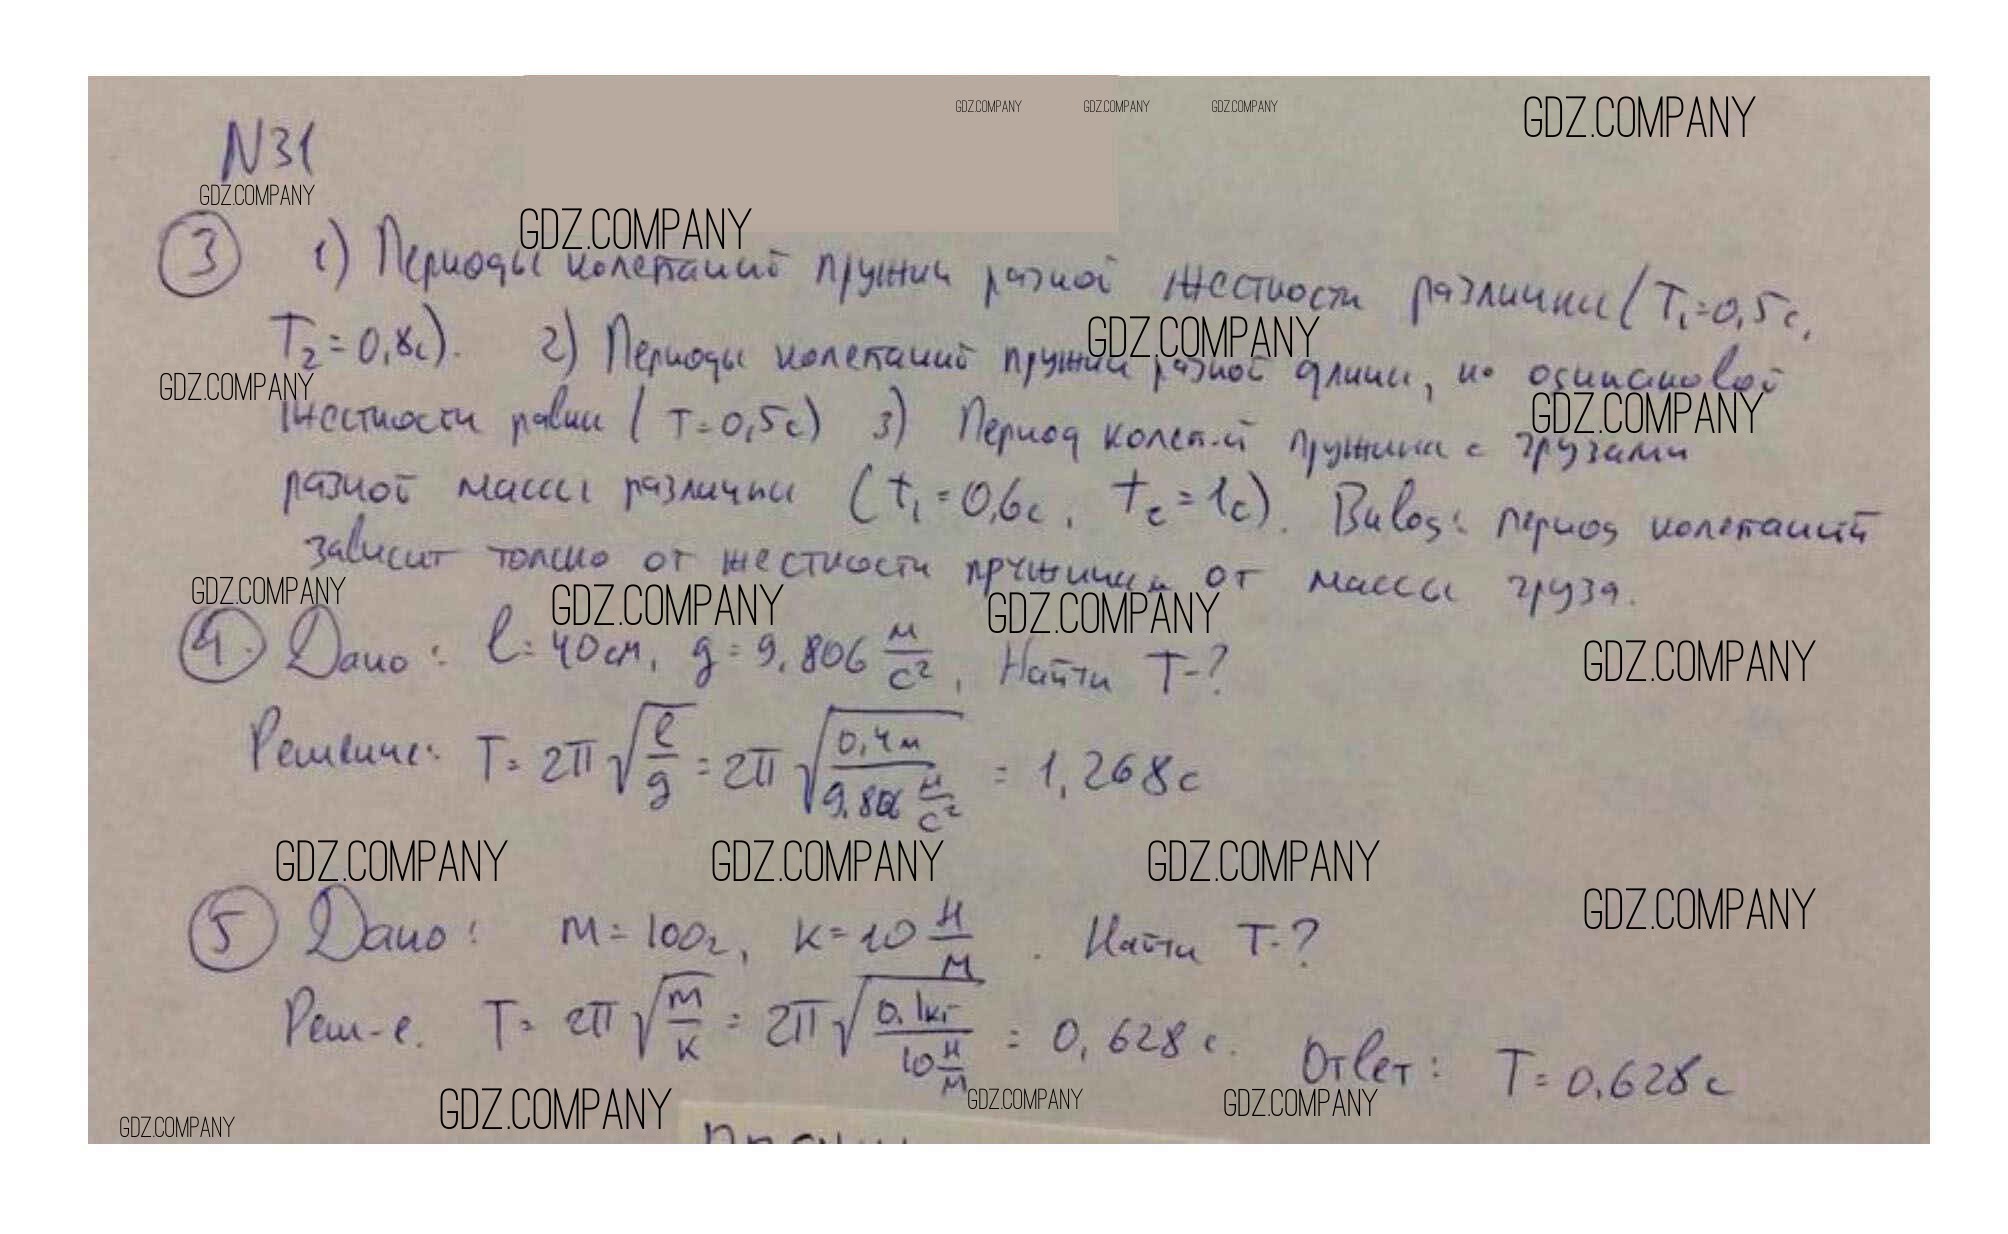 GDZ.COMPANY GDZ.COMPANY GDZ.COMPANY GDZ.COMPANY
N31
GDZ.COMPANY
GDZ.COMPANY
3 1) Периоды колебаний пружин разной жесткости различны (T₁=0,5с,
GDZ.COMPANY
T₂=0,8с). 2) Периоды колебаний пружин разной длины, но одинаковой
GDZ.COMPANY GDZ.COMPANY
жесткости равны (T=0,5с) 3) Период колеб-й пружины с грузами
разной массы различны (t₁=0,6с, t₂=1с). Вывод: период колебаний
зависит только от жесткости пружины и от массы груза.
GDZ.COMPANY GDZ.COMPANY GDZ.COMPANY
4. Дано: l=40см, g=9,806 м/с², Найти T-?
GDZ.COMPANY
Решение: T=2π√(l/g)=2π√(0,4м/9,806 м/с²) = 1,268с
GDZ.COMPANY GDZ.COMPANY GDZ.COMPANY
GDZ.COMPANY
5 Дано: m=100г, k=10 Н/м. Найти T-?
Реш-е. T=2π√(m/k)=2π√(0,1кг/10 Н/м) = 0,628с. Ответ: T=0,628с
GDZ.COMPANY GDZ.COMPANY GDZ.COMPANY GDZ.COMPANY